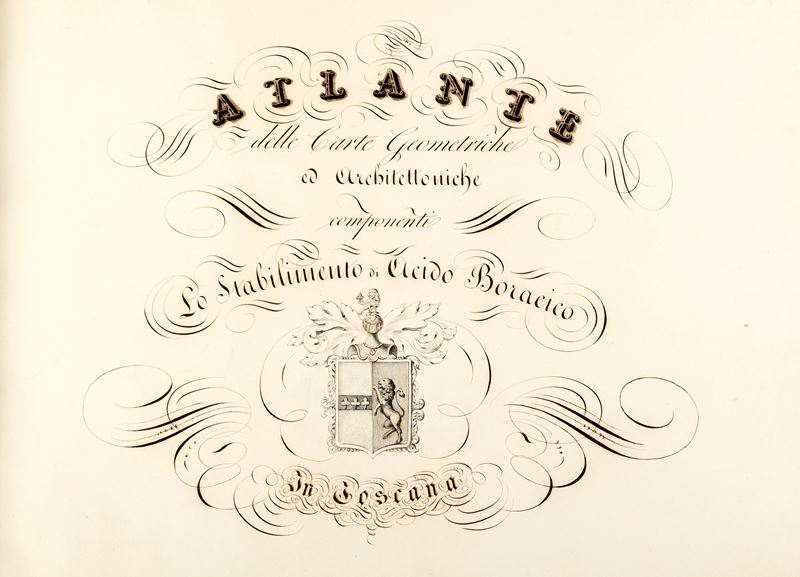 ATLANTE
delle Carte Geometriche
ed Architettoniche
componenti
Lo Stabilimento di Acido Boracico
In Toscana